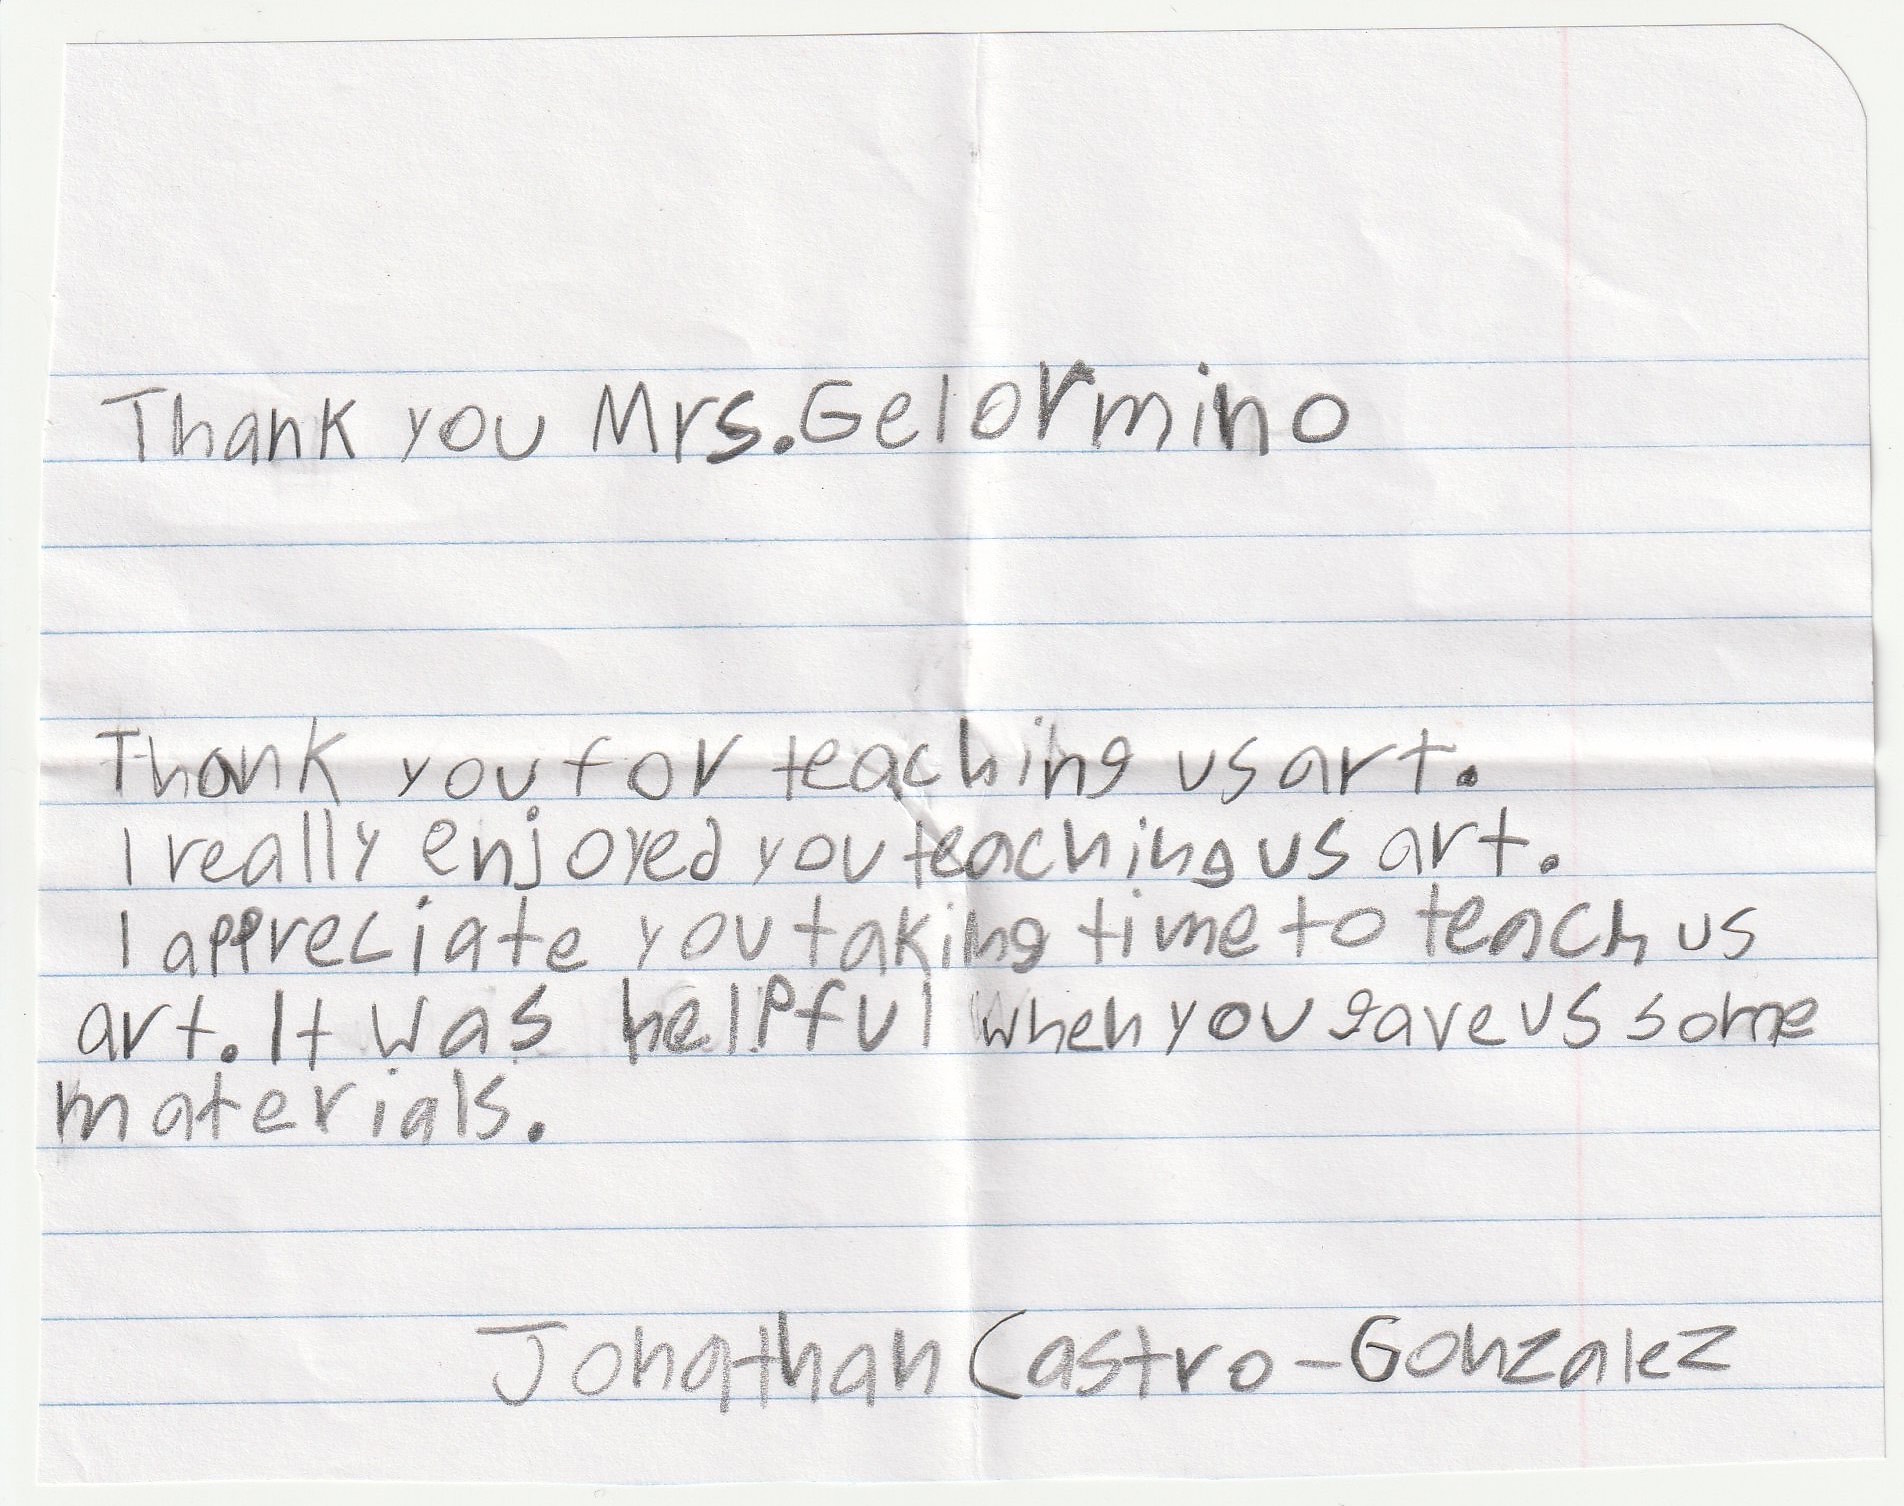 Thank you Mrs. Gelormino
Thank you for teaching us art.
I really enjoyed you teaching us art.
I appreciate you taking time to teach us
art. It was helpful when you gave us some
materials.
Jonathan Castro-Gonzalez